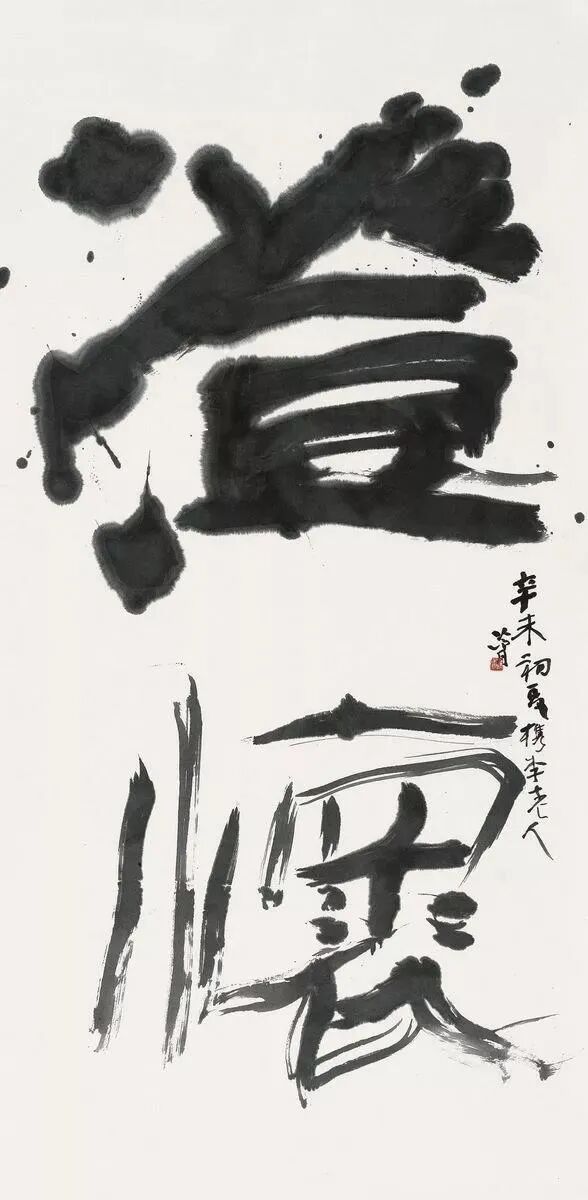 澄
懷
辛未初夏檇李老人